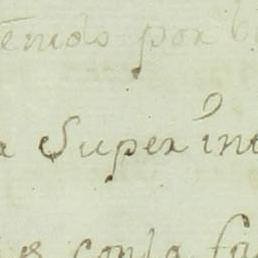 tenido por
a Super in
con la fa